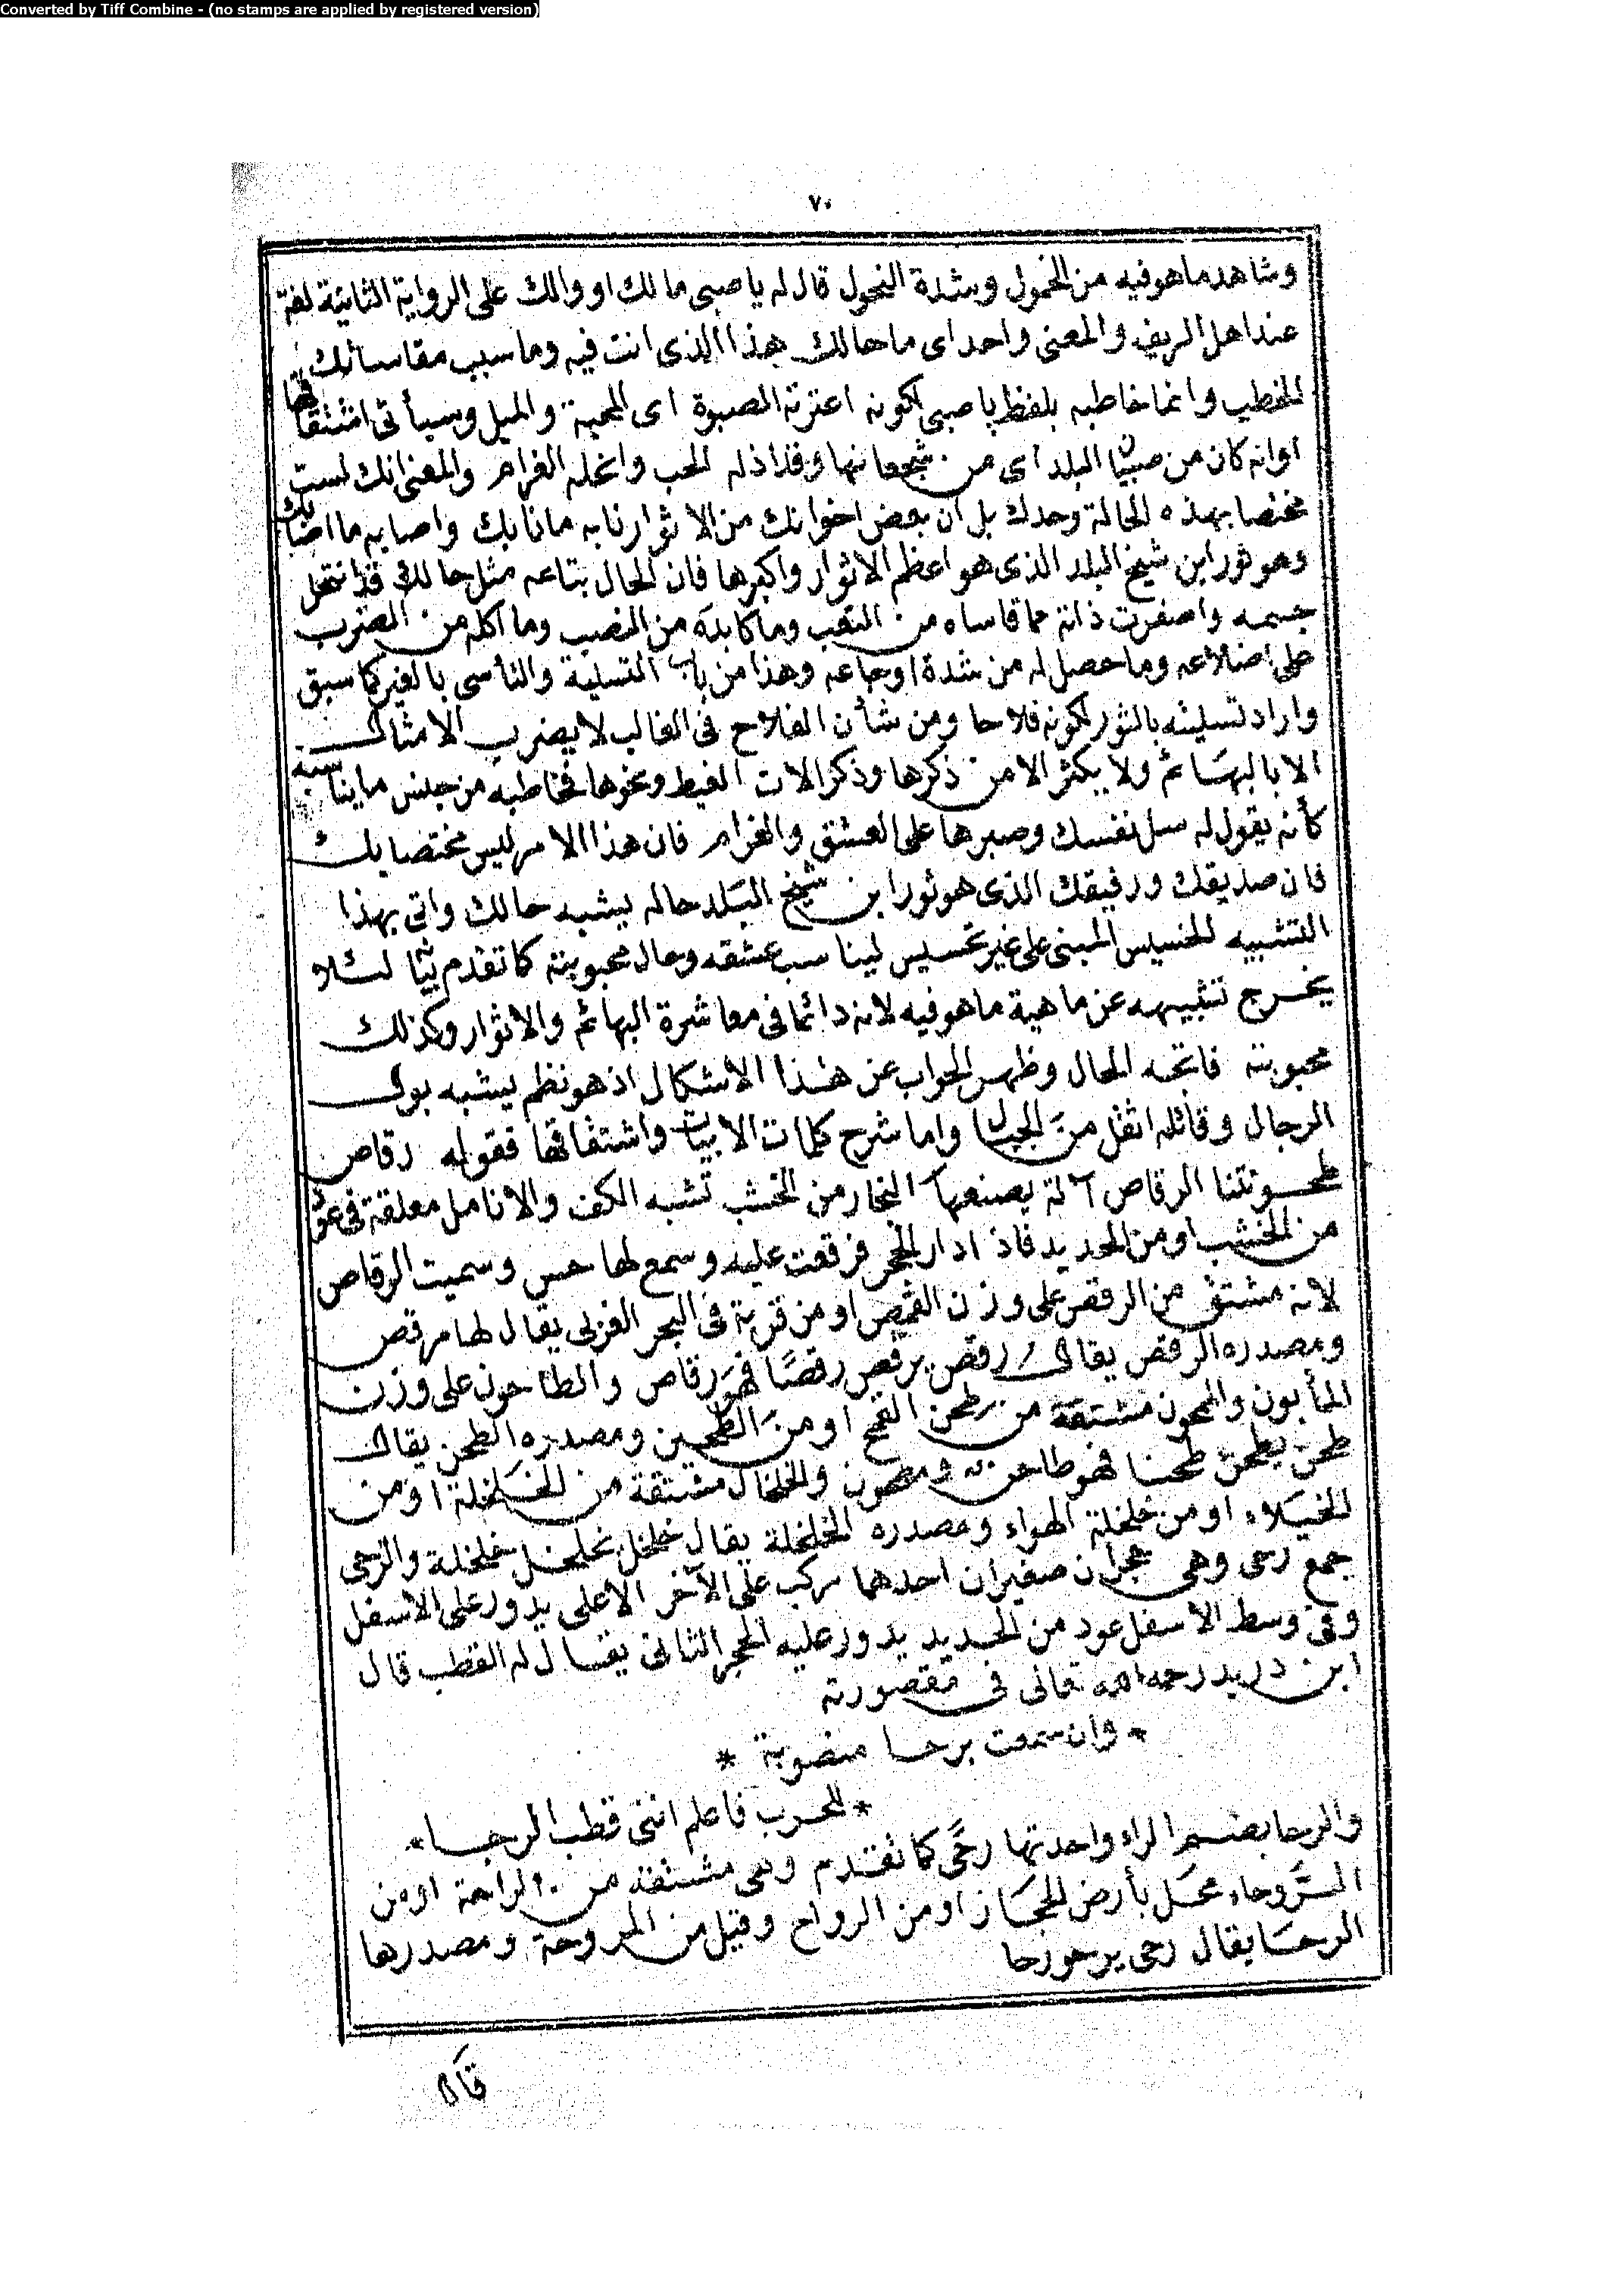 Converted by Tiff Combine - (no stamps are applied by registered version)
٧٠
وشاهد ما هو فيه من الخمول وشدة النحول قال له يا صبى مالك او والك على الرواية الثانية لغة
عند اهل الريف والمعنى واحد اى ما حالك هذا الذى انت فيه وما سبب مقاساتك
للخطب وانما خاطبه بلفظ يا صبى لكونه اعترته الصبوة اى المحبة والميل وسيأتى اشتقاقها
او انه كان من صبيان البلد اى من شجعانها وقد اذله الحب وانحله الغرام والمعنى انك لست
مختصا بهذه الحالة وحدك بل ان بعض اخوانك من الاثوار نابه ما نابك واصابه ما اصابك
وهو ثور ابن شيخ البلد الذى هو اعظم الاثوار واكبرها فان الحال بتاعه مثل حالك قد انتحل
جسمه واصفرت ذاته مما قاساه من التعب وما كابده من النصب وما اكله من الضرب
على اضلاعه وما حصل له من شدة اوجاعه وهذا من باب التسلية والتأسى بالغير كما سبق
واراد تسليته بالثور لكونه فلاحا ومن شأن الفلاح فى الغالب لا يضرب الامثال
الا بالبهائم ولا يكثر الا من ذكرها وذكر الات الغيط ونحوها فخاطبه من جنس ما يناسبه
كأنه يقول له سل نفسك وصبرها على العشق والغرام فان هذا الامر ليس مختصا بك
فان صديقك ورفيقك الذى هو ثور ابن شيخ البلد حاله يشبه حالك واتى بهذا
التشبيه الخسيس المبنى على غير تحسيس ليناسب عشقه وحال محبوبته كما تقدم لئلا
يخرج تشبيهه عن ماهية ما هو فيه لانه دائما فى معاشرة البهائم والاثوار وكذلك
محبوبته فاتجه الحال وظهر الجواب عن هذا الاشكال اذ هو نظم يشبه بول
الرجال وقائله اثقل من الجبال واما شرح كلمات الابيات واشتقاقها فقوله رقاص
طحونتنا الرقاص آلة يصنعها النجار من الخشب تشبه الكف والانامل معلقة فى عرق
من الخشب او من الحديد فاذا دار الحجر فرقعت عليه وسمع لها حس وسميت الرقاص
لانه مشتق من الرقص على وزن القميص او من قرية فى البحر الغربى يقال لها مرقص
ومصدره الرقص يقال رقص يرقص رقصًا فهو رقاص والطاحون على وزن
المأبون والمجون مشتقة من طحن القمح او من الطحين ومصدره الطحن يقال
طحن يطحن طحنا فهو طاحن ومطحون والخلخال مشتقة من الخلخلة او من
الخيلاء او من خلخلة الهواء ومصدره الخلخلة يقال خلخل يخلخل خلخلة والرحى
جمع رحى وهى حجران صغيران احدهما مركب على الآخر الاعلى يدور على الاسفل
وفى وسط الاسفل عود من الحديد يدور عليه الحجر الثانى يقال له القطب قال
ابن دريد رحمه الله تعالى فى مقصورته
* وان سمعت برحا منصوبة *
* للحرب فاعلم اننى قطب الرحا *
والرحا بضم الراء واحدتها رحًى كما تقدم وهى مشتقة من الراحة او من
الرَّوحاء محل بأرض الحجاز او من الرواح وقيل من المروحة ومصدرها
الرحا يقال رحى يرحو رحا
قال